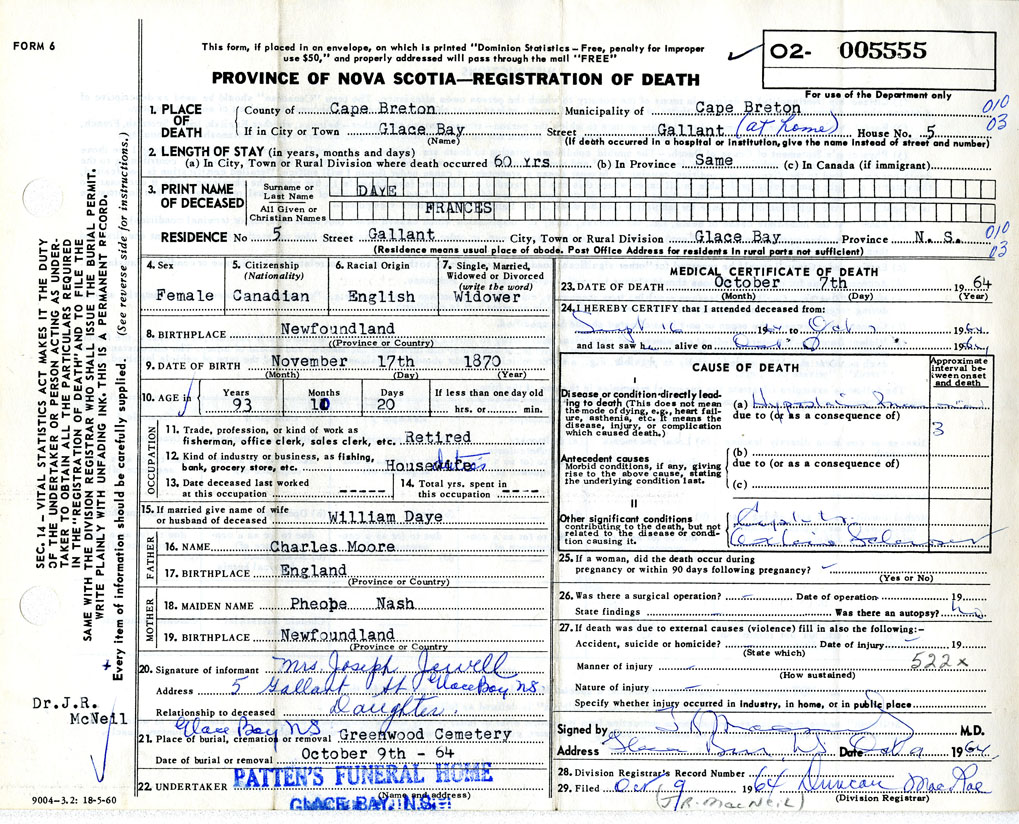 FORM 6
This form, if placed in an envelope, on which is printed "Dominion Statistics – Free, penalty for improper
use $50," and properly addressed will pass through the mail "FREE"
O2- 005555
PROVINCE OF NOVA SCOTIA—REGISTRATION OF DEATH
For use of the Department only
1. PLACE OF DEATH { County of Cape Breton Municipality of Cape Breton 010
If in City or Town Glace Bay (Name) Street Gallant (at home) House No. 5 03
(If death occurred in a hospital or institution, give the name instead of street and number)
2. LENGTH OF STAY (in years, months and days)
(a) In City, Town or Rural Division where death occurred 60 yrs (b) In Province Same (c) In Canada (if immigrant)
3. PRINT NAME OF DECEASED
Surname or Last Name DAYE
All Given or Christian Names FRANCES
RESIDENCE No 5 Street Gallant City, Town or Rural Division Glace Bay Province N. S. 010
03
(Residence means usual place of abode. Post Office Address for residents in rural parts not sufficient)
4. Sex
Female
5. Citizenship (Nationality)
Canadian
6. Racial Origin
English
7. Single, Married, Widowed or Divorced (write the word)
Widower
8. BIRTHPLACE Newfoundland
((Province or Country)
9. DATE OF BIRTH November 17th 1870
(Month) (Day) (Year)
10. AGE in
Years 93
Months 10
Days 20
If less than one day old
hrs. or min.
OCCUPATION
11. Trade, profession, or kind of work as
fisherman, office clerk, sales clerk, etc. Retired
12. Kind of industry or business, as fishing,
bank, grocery store, etc. Housewife
13. Date deceased last worked
at this occupation -----
14. Total yrs. spent in
this occupation ----
15. If married give name of wife
or husband of deceased William Daye
FATHER
16. NAME Charles Moore
17. BIRTHPLACE England
(Province or Country)
MOTHER
18. MAIDEN NAME Pheobe Nash
19. BIRTHPLACE Newfoundland
(Province or Country
20. Signature of informant Mrs. Joseph Jewell
Address 5 Gallant St Glace Bay N.S.
Relationship to deceased Daughter.
Glace Bay NS
21. Place of burial, cremation or removal Greenwood Cemetery
Date of burial or removal October 9th - 64
22. UNDERTAKER PATTEN'S FUNERAL HOME
(Name and address)
GLACE BAY, N.S.
MEDICAL CERTIFICATE OF DEATH
23. DATE OF DEATH October 7th 1964
(Month) (Day) (Year)
24. I HEREBY CERTIFY that I attended deceased from:
Sept 16 1964 to Oct 7 1964
and last saw h alive on 1964
CAUSE OF DEATH
Approximate interval between onset and death
I
Disease or condition directly leading to death (This does not mean the mode of dying, e.g., heart failure, asthenia, etc. It means the disease, injury, or complication which caused death.)
(a) Hypostatic
due to (or as a consequence of)
3
Antecedent causes
Morbid conditions, if any, giving rise to the above cause, stating the underlying condition last.
(b)
due to (or as a consequence of)
(c)
II
Other significant conditions
contributing to the death, but not related to the disease or condition causing it.
25. If a woman, did the death occur during
pregnancy or within 90 days following pregnancy?
(Yes or No)
26. Was there a surgical operation? Date of operation 19
State findings Was there an autopsy? no
27. If death was due to external causes (violence) fill in also the following:–
Accident, suicide or homicide? Date of injury 19
(State which)
Manner of injury 522x
(How sustained)
Nature of injury
Specify whether injury occurred in industry, in home, or in public place
Signed by M.D.
Address Glace Bay NS Date Oct 9 1964
28. Division Registrar's Record Number
29. Filed Oct 9 1964 Duncan MacRae
(J.R. MacNeil) (Division Registrar)
SEC. 14 – VITAL STATISTICS ACT MAKES IT THE DUTY
OF THE UNDERTAKER OR PERSON ACTING AS UNDER-
TAKER TO OBTAIN ALL THE PARTICULARS REQUIRED
IN THE "REGISTRATION OF DEATH" AND TO FILE THE
SAME WITH THE DIVISION REGISTRAR WHO SHALL ISSUE THE BURIAL PERMIT.
WRITE PLAINLY WITH UNFADING INK. THIS IS A PERMANENT RECORD.
Every item of information should be carefully supplied. (See reverse side for instructions.)
Dr. J.R.
McNeil
9004-3.2: 18-5-60